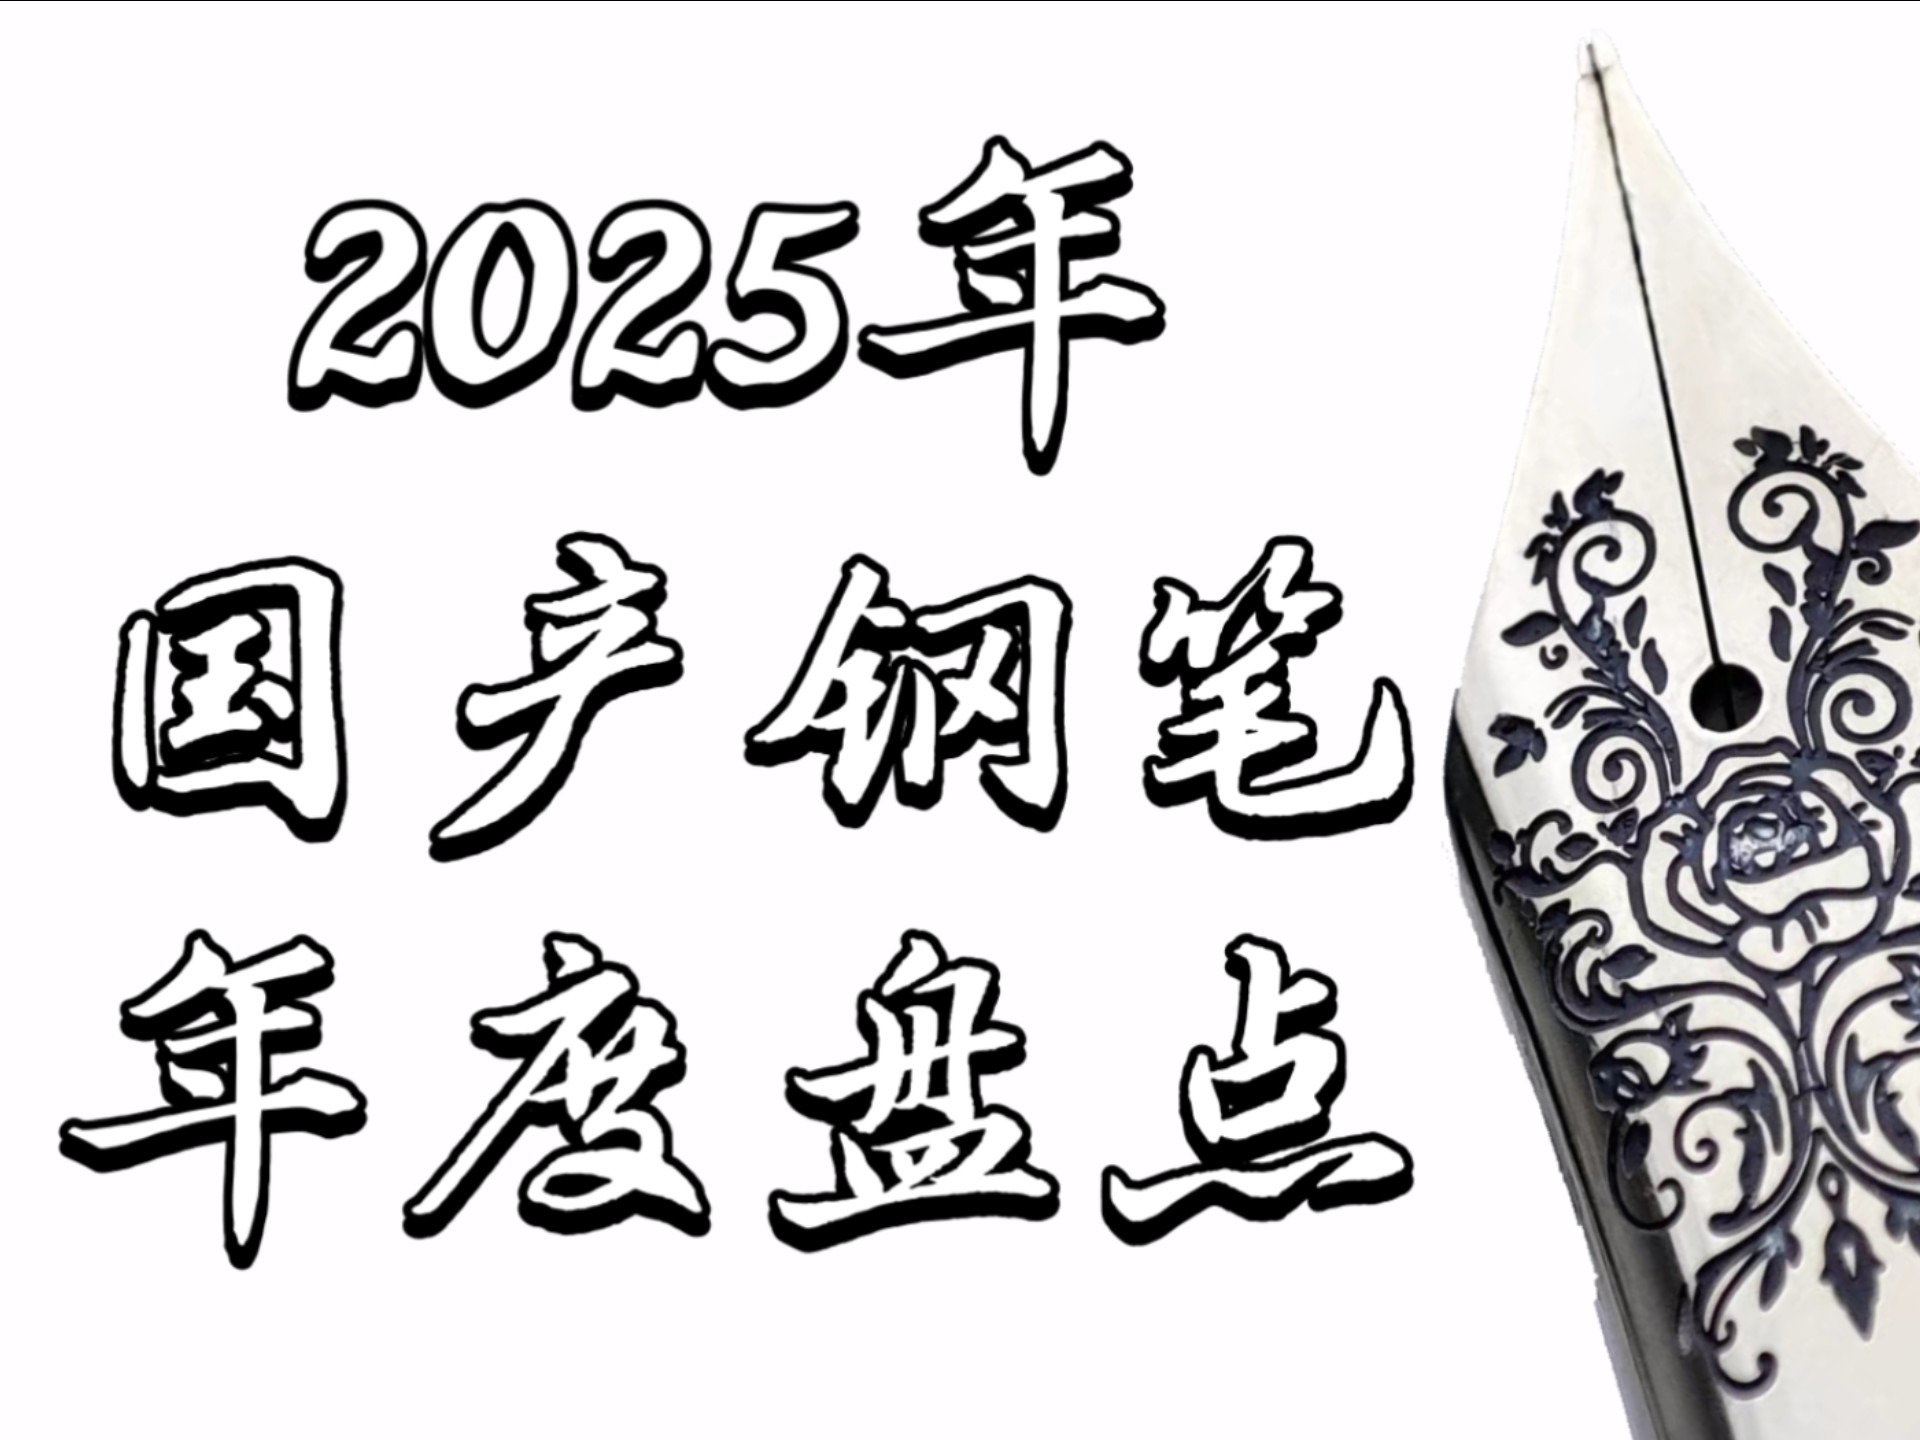 2025年
国产钢笔
年度盘点